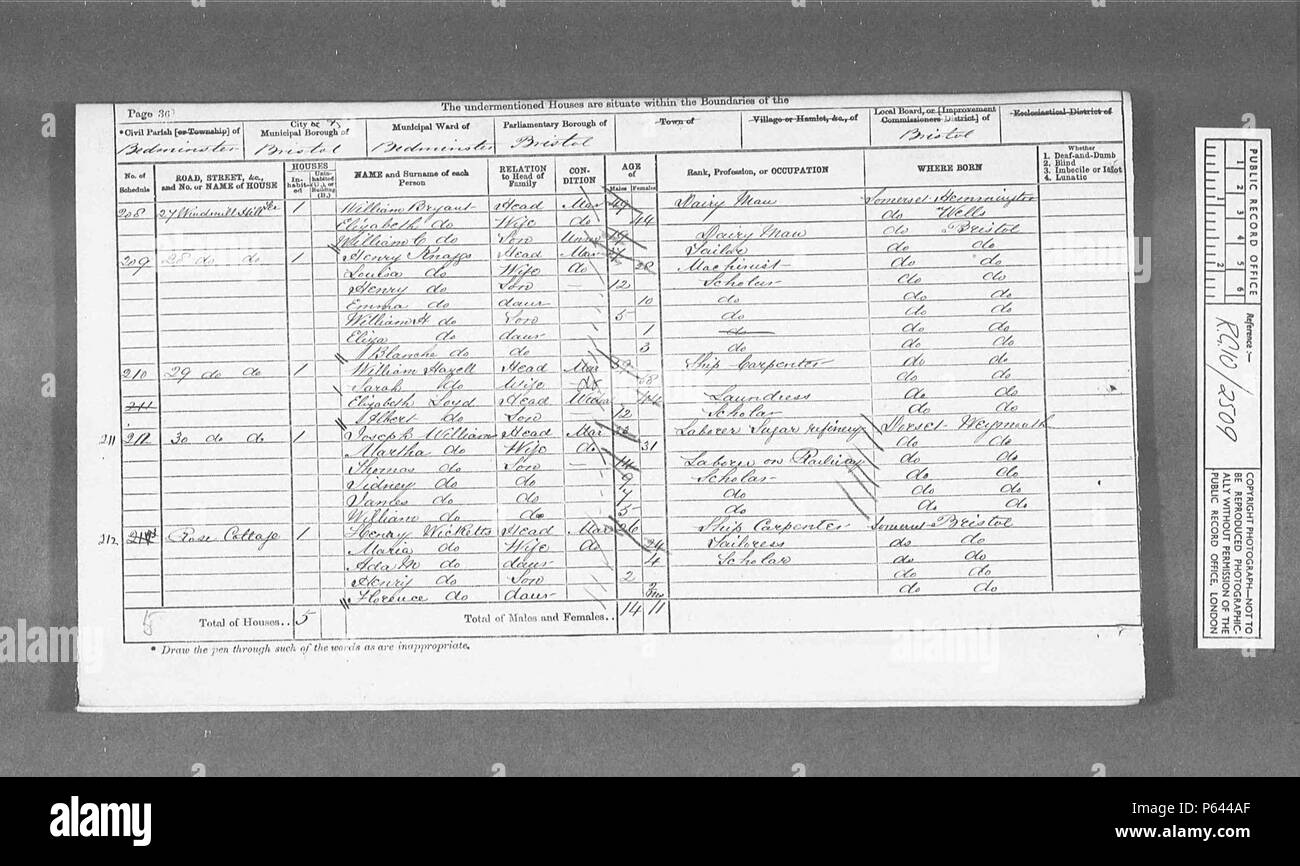 The undermentioned Houses are situate within the Boundaries of the
Page 36
* Civil Parish [or Township] of Bedminster
City or Municipal Borough of Bristol
Municipal Ward of Bedminster
Parliamentary Borough of Bristol
Town of
Village or Hamlet, &c., of
Local Board, or [Improvement Commissioners District] of Bristol
Ecclesiastical District of
No. of Schedule
ROAD, STREET, &c., and No. or NAME of HOUSE
HOUSES
In-habited
Unin-habited (U.), or Building (B.)
NAME and Surname of each Person
RELATION to Head of Family
CON-DITION
AGE of
Males
Females
Rank, Profession, or OCCUPATION
WHERE BORN
Whether
1. Deaf-and-Dumb
2. Blind
3. Imbecile or Idiot
4. Lunatic
208 27 Windmill Hill 1 William Bryant Head Mar 49 Dairy Man Somerset
Elizabeth do Wife do 44 do Wells
William C do Son Unm 19 Dairy Man do Bristol
209 28 do do 1 Henry Knapp Head Mar Tailor do do
Louisa do Wife do 38 Machinist do do
Henry do Son 12 Scholar do do
Emma do daur 10 do do do
William H do Son 5 do do do
Eliza do daur 1 do do do
Blanche do do 3 do do do
210 29 do do 1 William Hazell Head Mar Ship Carpenter do do
Sarah do Wife do do do
211 Elizabeth Loyd Head 44 Laundress do do
Albert do Son 12 Scholar do do
211 212 30 do do 1 Joseph Williams Head Mar Laborer Sugar refinery Dorset Weymouth
Martha do Wife do 31 do do
Thomas do Son 14 Laborer on Railway do do
Sidney do do 9 Scholar do do
James do do 7 do do do
William do do 5 do do do
212 Rose Cottage 1 Henry Wicketts Head Mar 26 Ship Carpenter Somerset Bristol
Maria do Wife do 24 Tailoress do do
Ada M do daur 4 Scholar do do
Henry do Son 2 do do
Florence do daur 2 do do
5 Total of Houses.. 5 Total of Males and Females.. 14 11
* Draw the pen through such of the words as are inappropriate.
PUBLIC RECORD OFFICE
1 2 3 4 5 6
1 2
Reference :—
RG10/2509
COPYRIGHT PHOTOGRAPH—NOT TO
BE REPRODUCED PHOTOGRAPHIC-
ALLY WITHOUT PERMISSION OF THE
PUBLIC RECORD OFFICE, LONDON
alamy
alamy
Image ID: P644AF
www.alamy.com